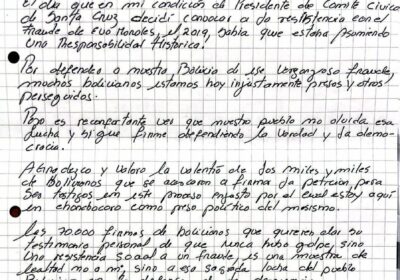 El día que en mi condición de Presidente de Comité Cívico
de Santa Cruz decidí convocar a la resistencia con el
fraude de Evo Morales, el 2019, sabía que estaba asumiendo
Una Responsabilidad Histórica.
Por defender a nuestra Bolivia de ese vergonzoso fraude,
muchos bolivianos estamos hoy injustamente presos y otros
perseguidos.
Pero es reconfortante ver que nuestro pueblo no olvida esa
lucha y sigue firme defendiendo la verdad y la demo-
cracia.
Agradezco y valoro la valentía de los miles y miles
de Bolivianos que se acercaron a firmar la petición para
Ser testigos en este proceso injusto por el cual estoy aquí
en chonchocoro como preso político del masismo.
Las 70.000 firmas de bolivianos que quieren dar su
testimonio personal de que nunca hubo golpe, sino
Una resistencia social a un fraude, es una muestra de
lealtad no a mí, sino a esa sagrada lucha del pueblo